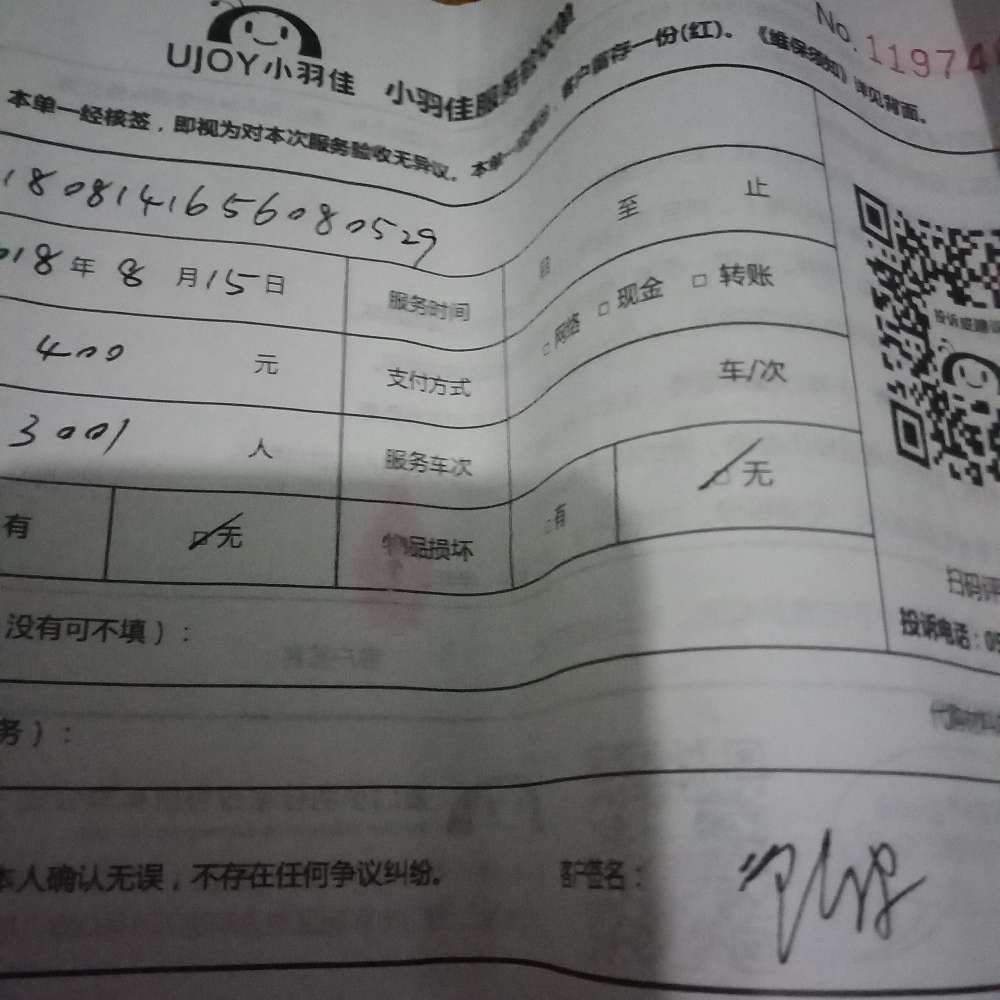 UJOY小羽佳 小羽佳服务验收单
No.11974
本单一经核签，即视为对本次服务验收无异议。本单一 客户留存一份(红)。《维保须知》详见背面。
180814165608 0529
018年8月15日 服务时间 自 至 止
400 元 支付方式 □网络 □现金 □转账
3001 人 服务车次 车/次
有 □无 物品损坏 □有 □无
投诉或建议
扫码评
没有可不填）：
投诉电话：05
务）：
本人确认无误，不存在任何争议纠纷。 客户签名：